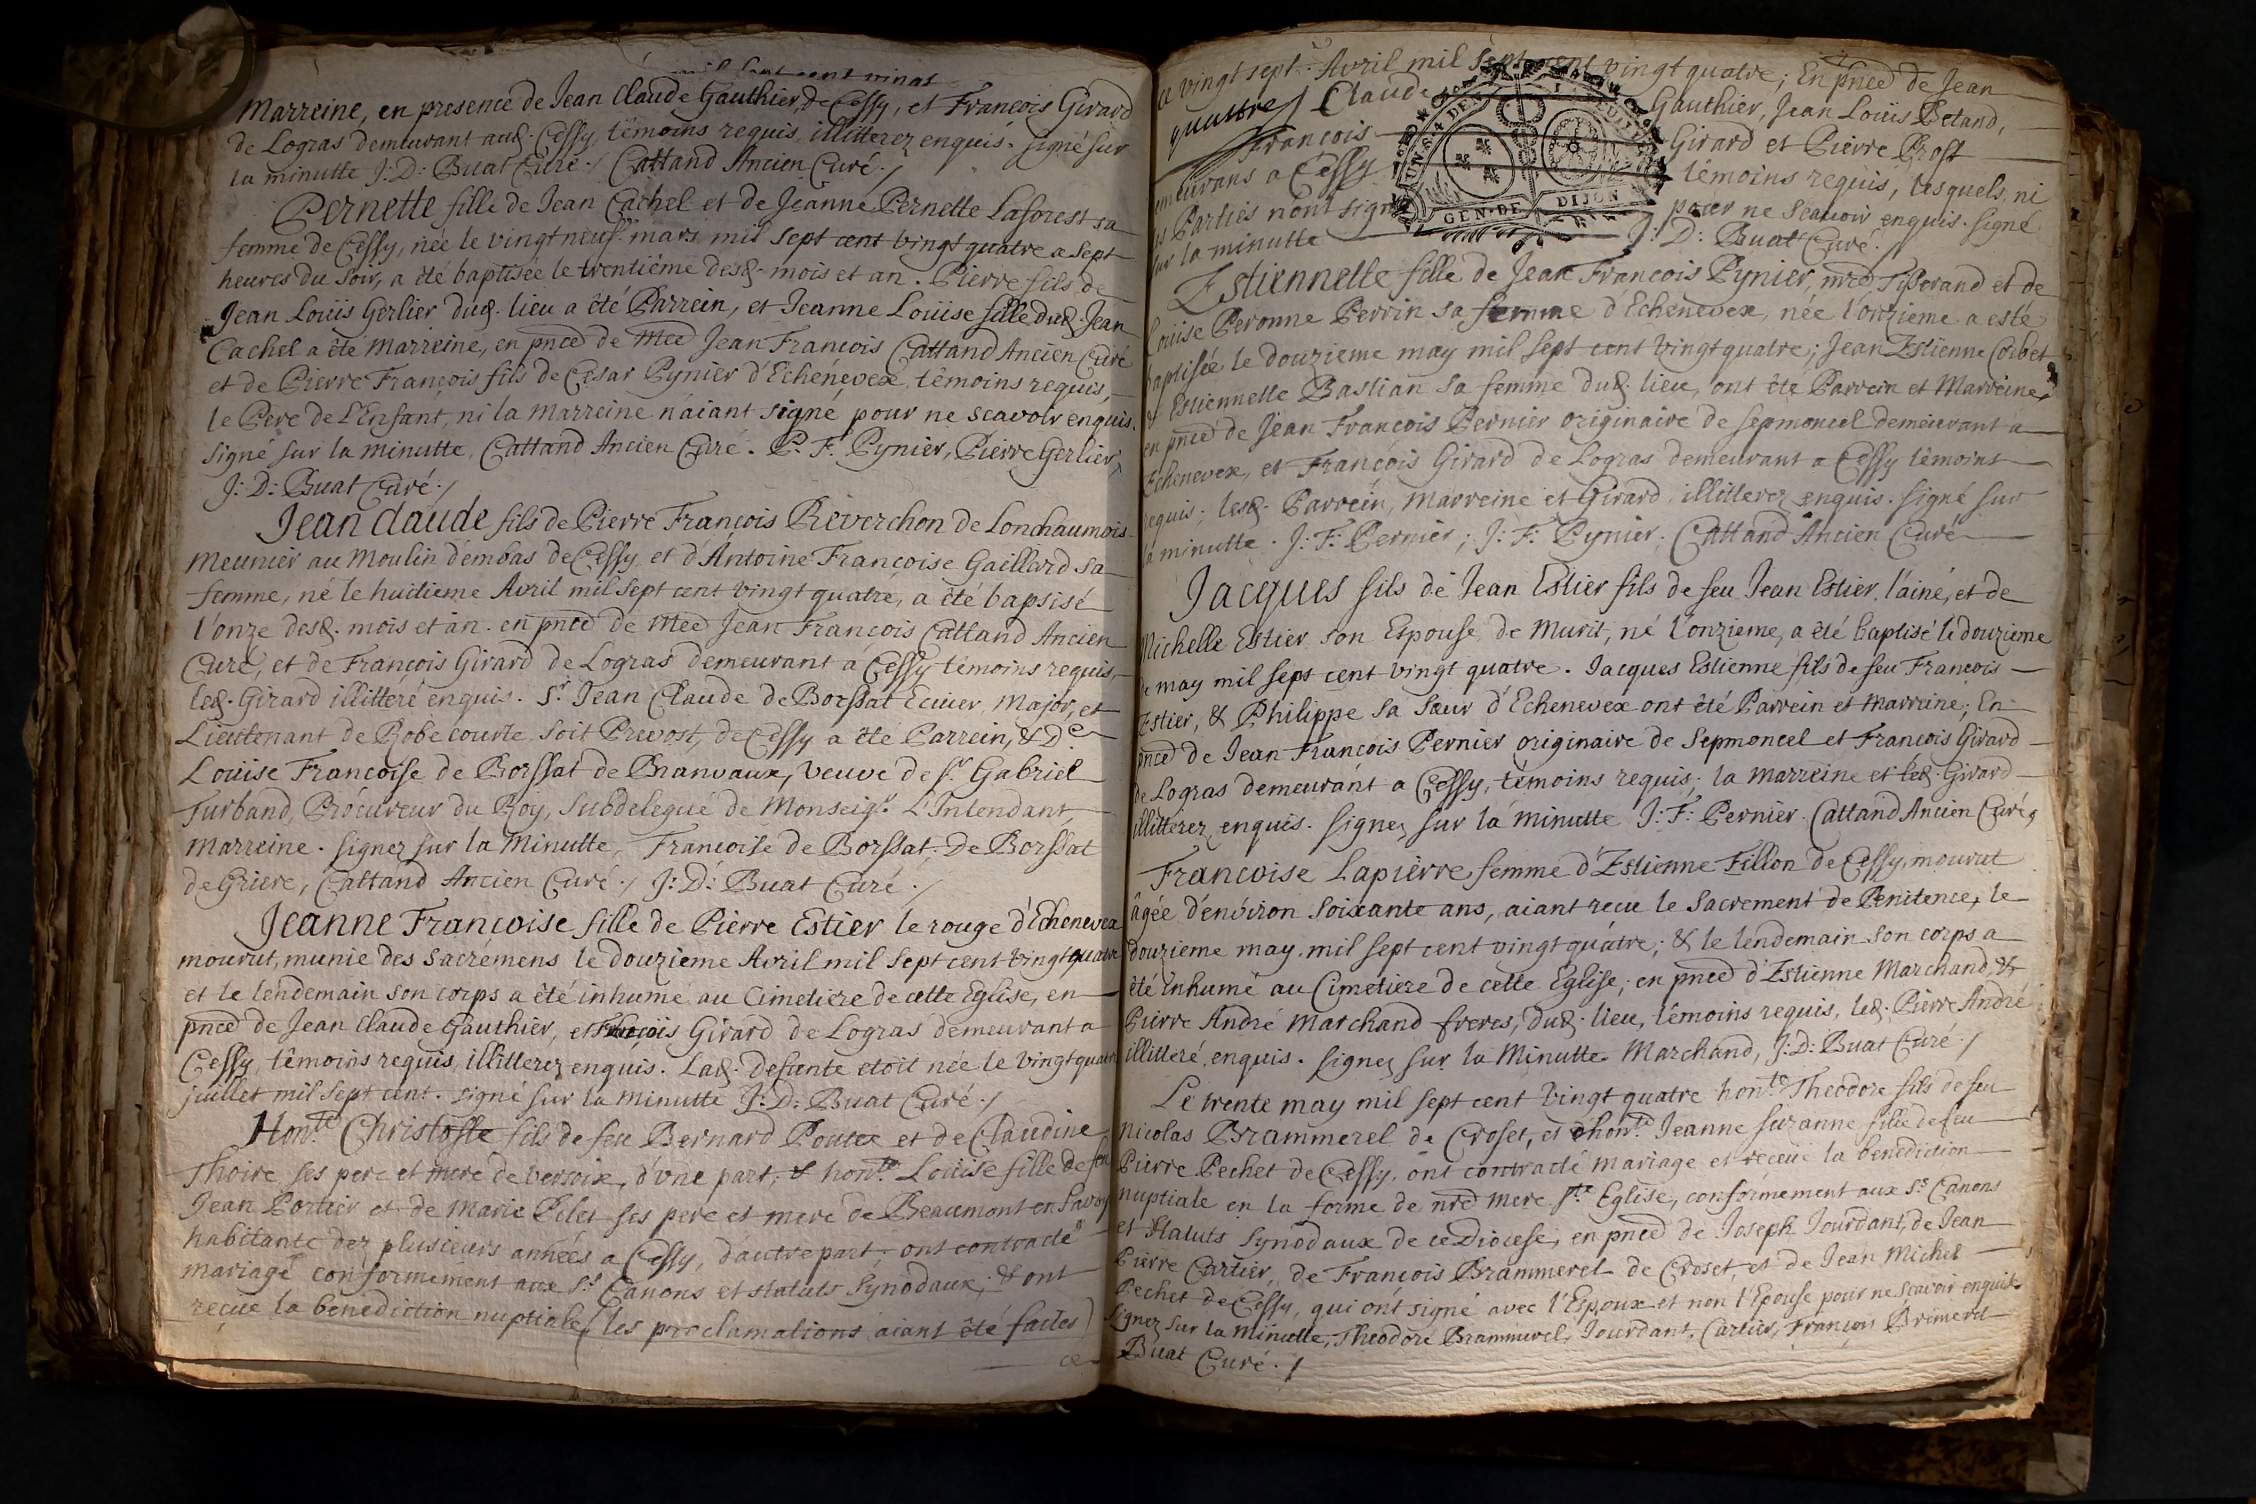 mil sept cent vingt
Marreine, en presence de Jean Claude Gauthier, de Cessy, et François Girard
de Logras demeurant aud. Cessy, têmoins requis, illitterez enquis. signé sur
la minutte J: D: Buat Curé ./ Cattand Ancien Curé ./
Pernette fille de Jean Cachel et de Jeanne Pernette Laforest sa
femme de Cessy, née le vingtneuf mars mil sept cent vingt quatre a sept
heures du soir, a été baptisée le trentiéme desd. mois et an. Pierre fils de
Jean Loüis Gerlier dud. lieu a êté Parrein, et Jeanne Loüise fille dud. Jean
Cachel a êté Marreine, en pnce de Mre Jean François Cattand Ancien Curé
et de Pierre François fils de Cesar Pynier d'Echenevex, têmoins requis,
le Pere de l'Enfant, ni la Marreine n'aiant signé pour ne scavoir enquis.
signé sur la minutte, Cattand Ancien Curé. P. F. Pynier, Pierre Gerlier,
J: D: Buat Curé ./
Jean Claude fils de Pierre François Reverchon de Lonchaumois
Meunier au Moulin d'embas de Cessy, et d'Antoine Françoise Gaillard sa
femme, né le huitieme Avril mil sept cent vingt quatre, a êté bapsisé
l'onze desd. mois et an. en pnce de Mre Jean François Cattand Ancien
Curé, et de François Girard de Logras demeurant a Cessy têmoins requis,
led. Girard illitteré enquis. Sr. Jean Claude de Borssat Ecuier, Major, et
Lieutenant de Robe courte, soit Prevost, de Cessy a êté Parrein, & De.
Loüise Françoise de Borssat de Branvaux, veuve de Sr. Gabriel
Turband, Procureur du Roy, Subdelegué de Monseigr. L'Intendant,
Marreine. signez sur la Minutte, Francoise de Borssat, De Borssat
de Griere, Cattand Ancien Curé ./ J: D: Buat Curé ./
Jeanne Françoise fille de Pierre Estier le rouge d'Echenevex
mourut, munie des Sacrémens le douzieme Avril mil sept cent vingt quatre
et le lendemain son corps a êté inhumé au Cimetiere de cette Eglise, en
pnce de Jean Claude Gauthier, et François Girard de Logras demeurant a
Cessy, têmoins requis, illitterez enquis. Lad. defunte etoit née le vingt quatre
juillet mil sept cent. signé sur la minutte J: D: Buat Curé ./
Honte. Christofle fils de feu Bernard Poutex et de Claudine
Thoire ses pere et mere de Versoix, d'une part, & honte. Loüise fille de feu
Jean Portier et de Marie Pelet ses pere et mere de Beaumont en Savoye
habitante dez plusieurs années a Cessy, d'autre part, ont contracté
mariage conformément aux Sts Canons et statuts Synodaux; & ont
reçue la benediction nuptiale (les proclamations aiant êté faites)
ce
ce vingt sept Avril mil sept cent vingt quatre; En pnce de Jean
quattre / Claude Gauthier, Jean Loüis Betand,
François Girard et Pierre Prost
demeurans a Cessy têmoins requis, lesquels, ni
les Parties n'ont signé pour ne scavoir enquis. signé
sur la minutte J: D: Buat Curé ./
GEN. DE DIJON
Estiennette fille de Jean François Pynier, mre Tisserand et de
Loüise Peronne Perrin sa femme d'Echenevex, née l'onzieme a esté
baptisée le douzieme may mil sept cent vingt quatre; Jean Estienne Corbet
& Estiennette Bastian sa femme dud. lieu, ont été Parrein et Marreine,
en pnce de Jean François Pernier originaire de Sepmoncel demeurant a
Echenevex, et François Girard de Logras demeurant a Cessy têmoins
requis; lesd. Parrein, Marreine et Girard illitterez enquis. signé sur
la minutte. J: F: Pernier; J: F: Pynier. Cattand Ancien Curé
Jacques fils de Jean Estier fils de feu Jean Estier, l'ainé, et de
Michelle Estier son Espouse, de Murit, né l'onzieme, a êté baptisé le douzieme
de may mil sept cent vingt quatre. Jacques Estienne fils de feu François
Estier, & Philippe sa sœur d'Echenevex ont été Parrein et Marreine; En
pnce de Jean François Pernier originaire de Sepmoncel et François Girard
de Logras demeurant a Cessy, têmoins requis; la Marreine et led. Girard
illitterez enquis. Signez sur la minutte J: F: Pernier. Cattand Ancien Curé,
Francoise Lapierre femme d'Estienne Fillon de Cessy, mourut
âgée d'environ soixante ans, aiant recue le Sacrement de Penitence, le
douzieme may mil sept cent vingt quatre; & le lendemain son corps a
été inhumé au Cimetiere de cette Eglise; en pnce d'Estienne Marchand, &
Pierre André Marchand freres, dud. lieu, têmoins requis, led. Pierre André
illitteré, enquis. Signez sur la Minutte. Marchand, J: D: Buat Curé ./
Le trente may mil sept cent vingt quatre honte. Theodore fils de feu
Nicolas Brammerel de Croset, et honte. Jeanne Suzanne fille de feu
Pierre Pechet de Cessy, ont contracté mariage et receüe la benediction
nuptiale en la forme de nre mere Ste Eglise, conformement aux Sts Canons
et Statuts Synodaux de ce Diocese, en pnce de Joseph Jourdant, de Jean
Pierre Cartier, de François Brammerel de Croset, et de Jean Michel
Pechet de Cessy, qui ont signé avec l'Espoux et non l'Epouse pour ne scavoir enquis.
Signez sur la minutte, Theodore Brammerel, Jourdant, Cartier, François Bremerel
Buat Curé ./